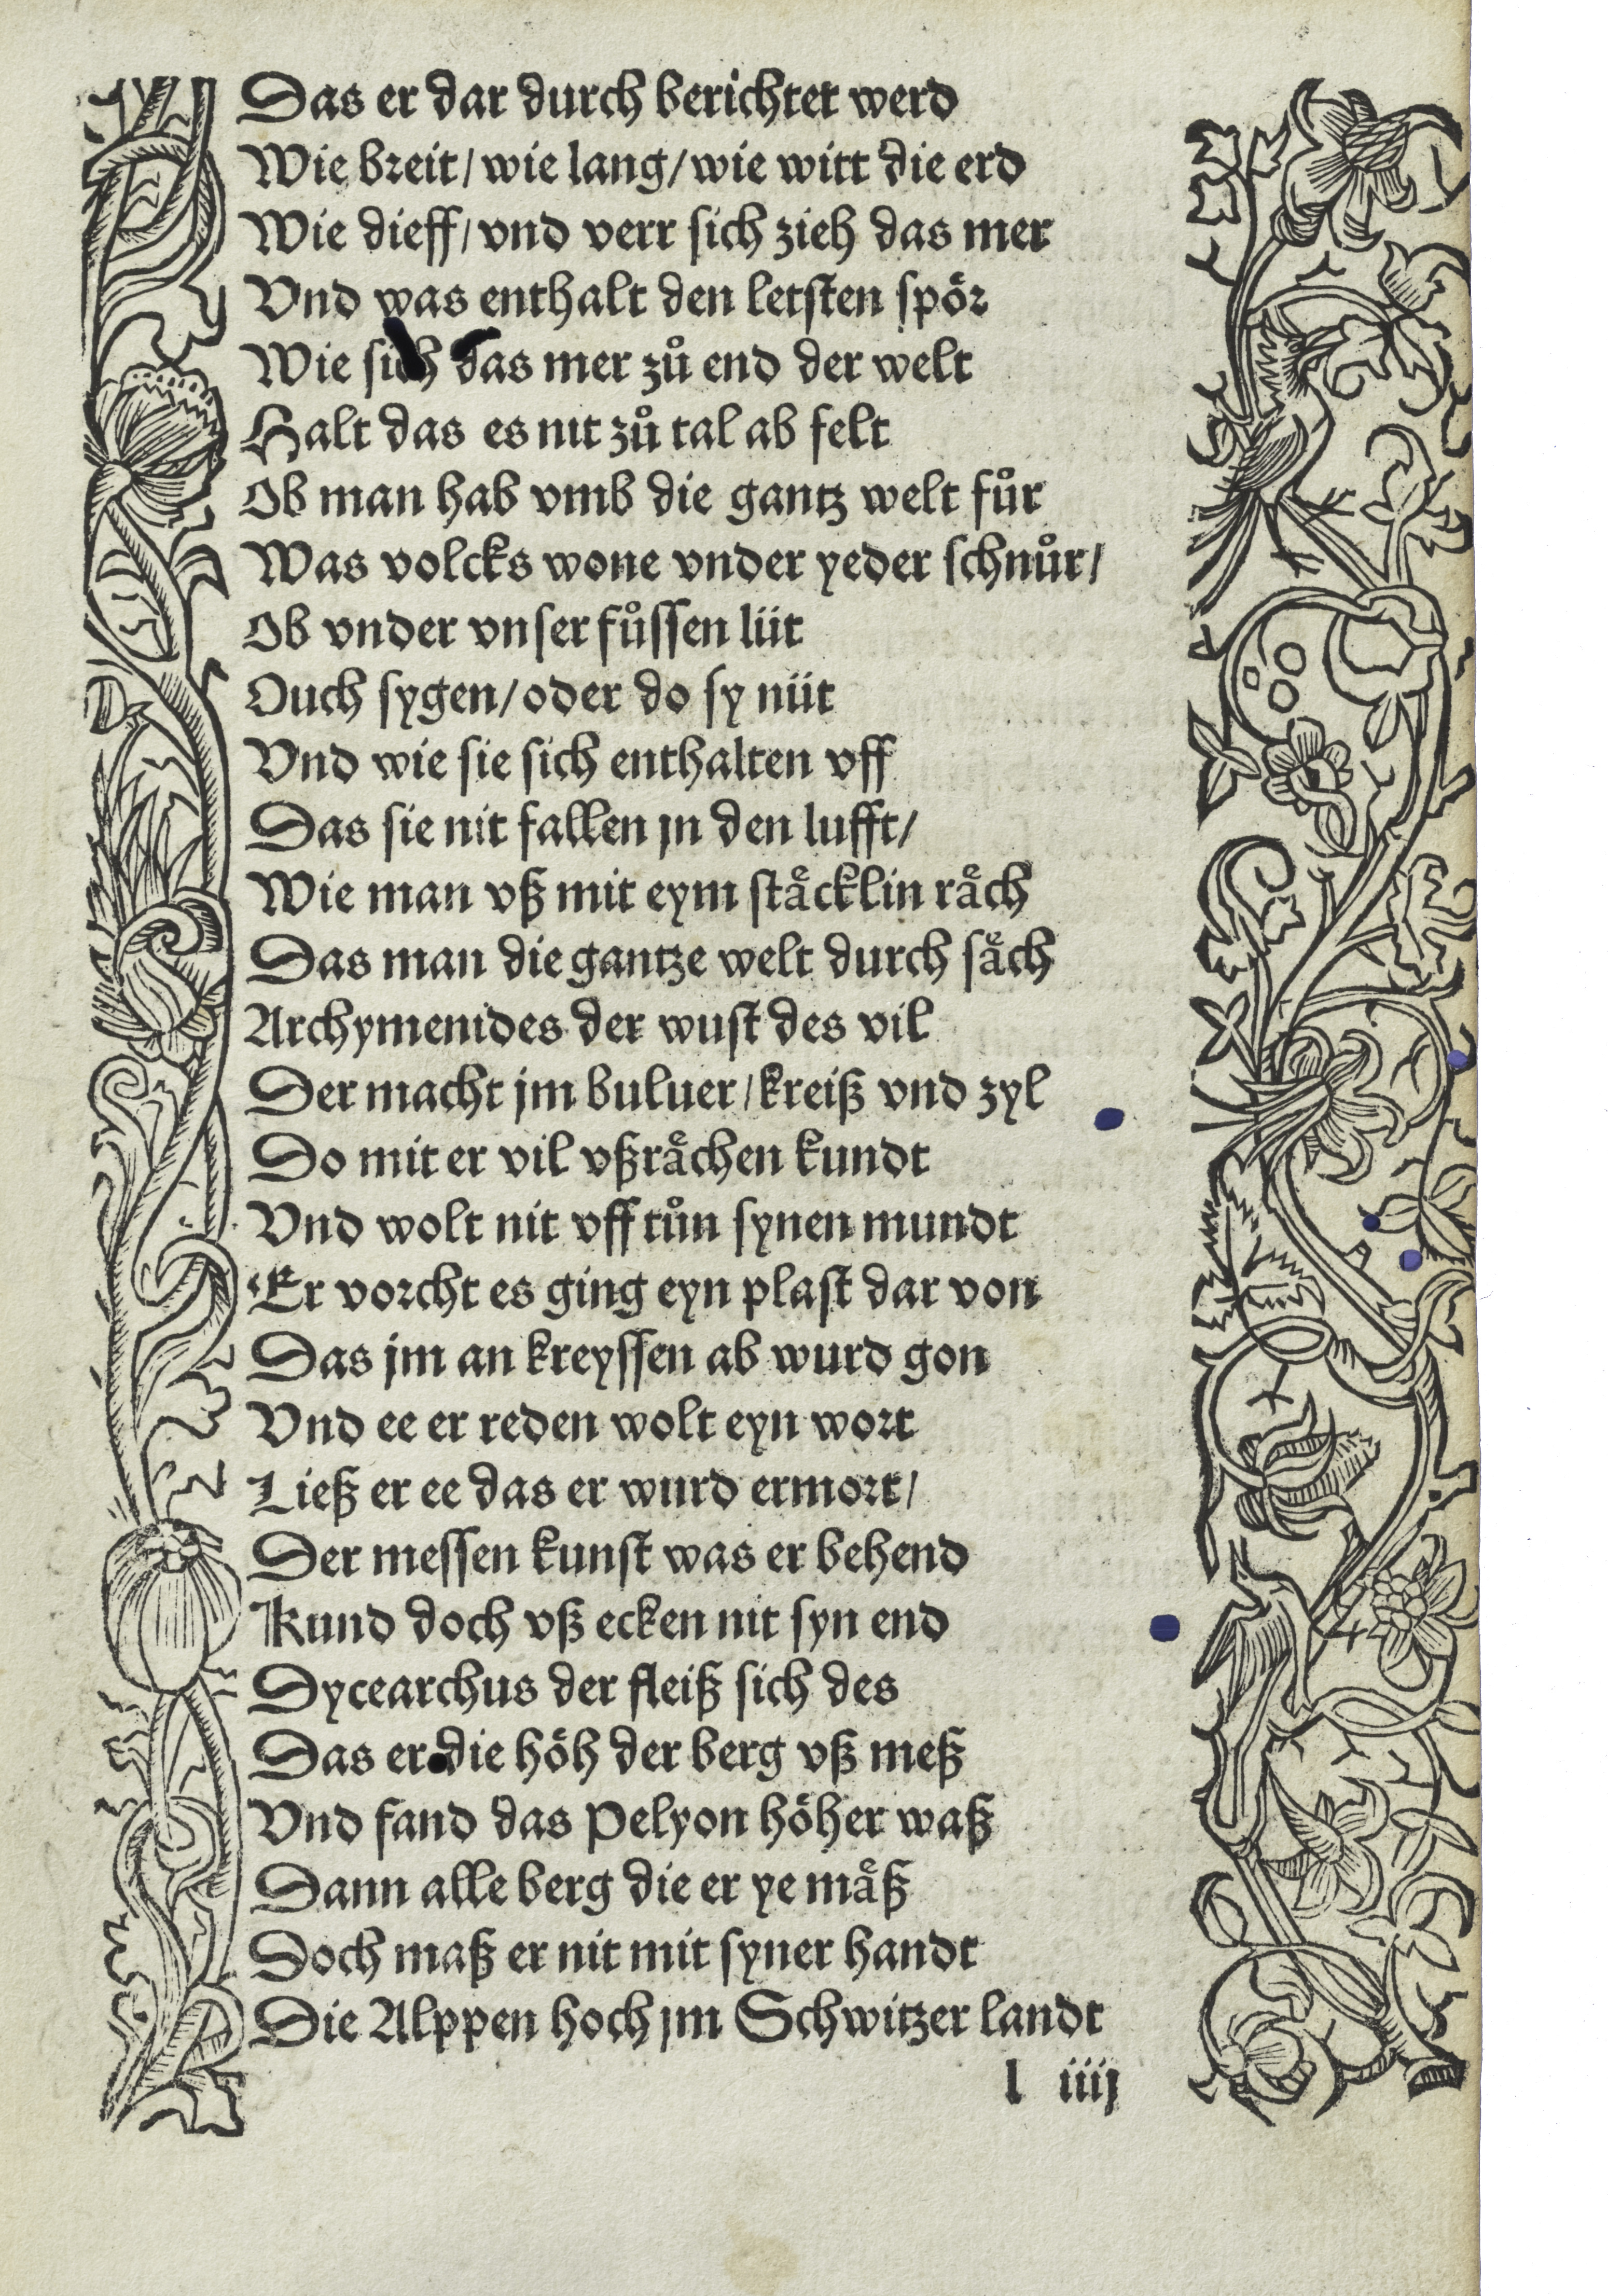 Das er dar durch berichtet werd
Wie breit/ wie lang/ wie witt die erd
Wie dieff/ vnd verr sich zieh das mer
Vnd was enthalt den letsten spoͤr
Wie sich das mer zuͦ end der welt
Halt das es nit zuͦ tal ab felt
Ob man hab vmb die gantz welt fuͦr
Was volcks wone vnder yeder schnuͦr/
Ob vnder vnser fuͦssen lüt
Ouch sygen/ oder do sy nüt
Vnd wie sie sich enthalten vff
Das sie nit fallen jn den lufft/
Wie man vß mit eym staͤcklin raͤch
Das man die gantze welt durch saͤch
Archymenides der wust des vil
Der macht jm buluer/ kreiß vnd zyl
Do mit er vil vßraͤchen kundt
Vnd wolt nit vff tuͦn synen mundt
Er vorcht es ging eyn plast dar von
Das jm an kreyssen ab wurd gon
Vnd ee er reden wolt eyn wort
Ließ er ee das er wurd ermort/
Der messen kunst was er behend
Kund doch vß ecken nit syn end
Dycearchus der fleiß sich des
Das er die hoͤh der berg vß meß
Vnd fand das Pelyon hoͤher waß
Dann alle berg die er ye maͤß
Doch maß er nit mit syner handt
Die Alppen hoch jm Schwitzer landt
l iiij